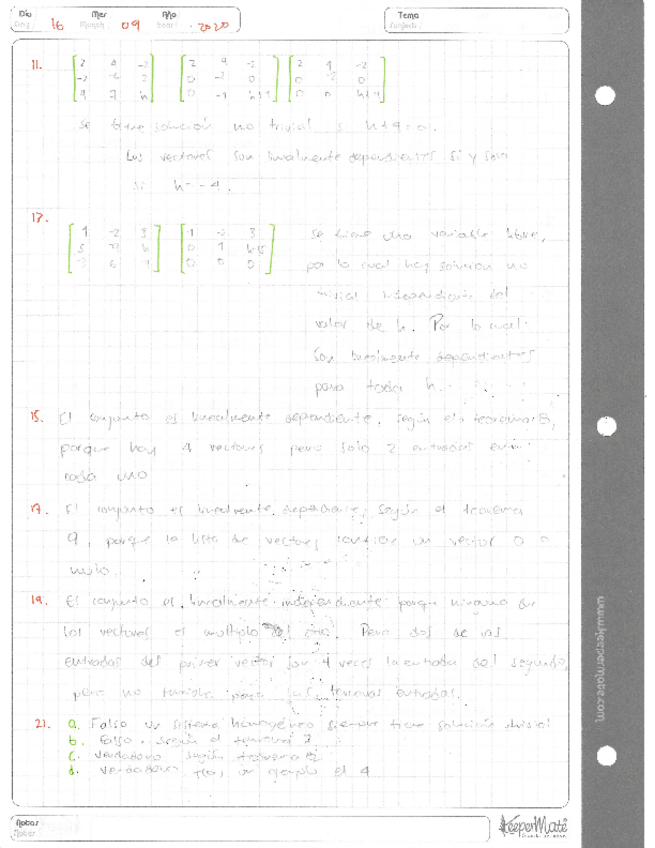 Día Mes Año Tema
16 09 2020
11. 2 4 -2 2 4 -2 2 4 -2
-2 -6 2 0 -2 0 0 -2 0
4 7 h 0 -1 h+4 0 0 h+4
se tiene solución no trivial si h+4=0.
Los vectores son linealmente dependientes si y solo
si h=-4.
17.
1 -2 3 1 -2 3
5 h 0 1 h-15
6 0 0 0
se tiene una variable libre,
por lo cual hay solución no
trivial independiente del
valor de h. Por lo cual
son linealmente dependientes
para toda h.
15. El conjunto es linealmente dependiente, según el teorema 8,
porque hay 4 vectores pero solo 2 entradas en
cada uno
17. El conjunto es linealmente dependiente, según el teorema
9, porque la lista de vectores contiene un vector 0 o
nulo.
19. El conjunto es linealmente independiente porque ninguno de
los vectores es multiplo del otro. Pero dos de las
entradas del primer vector son 4 veces la entrada del segundo,
pero no funciona para las terceras entradas.
21. a. Falso un sistema homogéneo siempre tiene solución trivial
b. Falso. según el teorema 7
c. Verdadero según teorema 8
d. Verdadero ejemplo el 4
Notas
KeeperMate
www.keepermate.com